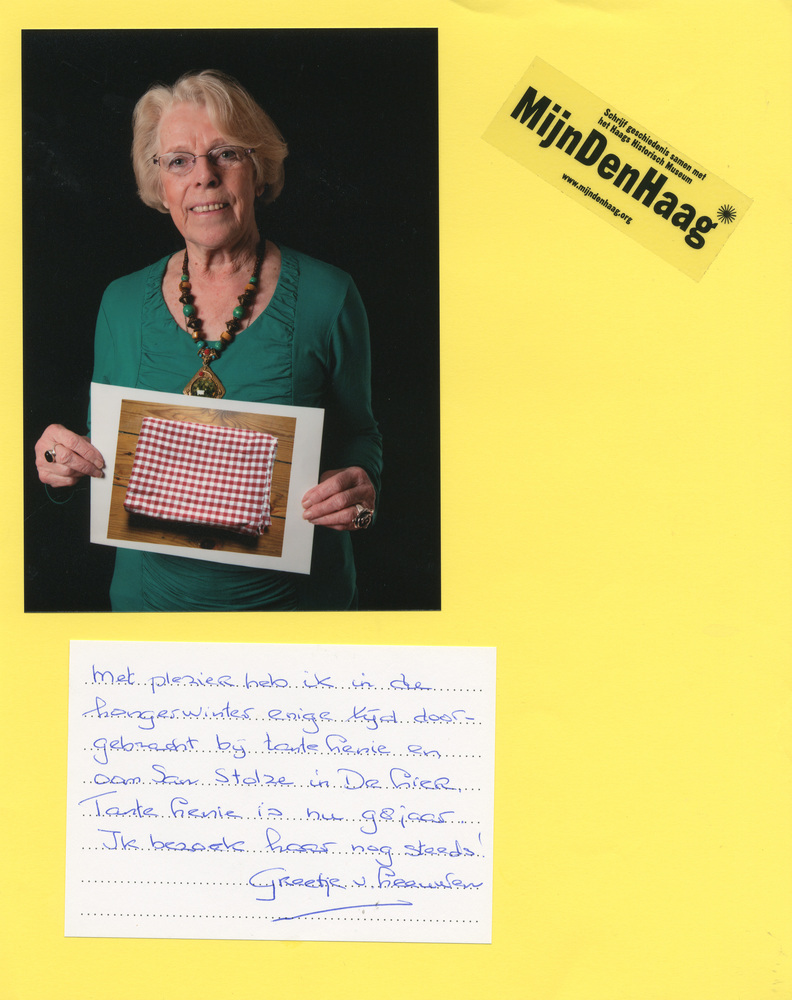 Schrijf geschiedenis samen met
het Haags Historisch Museum
MijnDenHaag
www.mijndenhaag.org
Met plezier heb ik in de
hongerwinter enige tijd door-
gebracht bij tante Lenie en
oom San Stolze in De Lier.
Tante Lenie is nu 98 jaar
Ik bezoek haar nog steeds!
Greetje v. Leeuwen